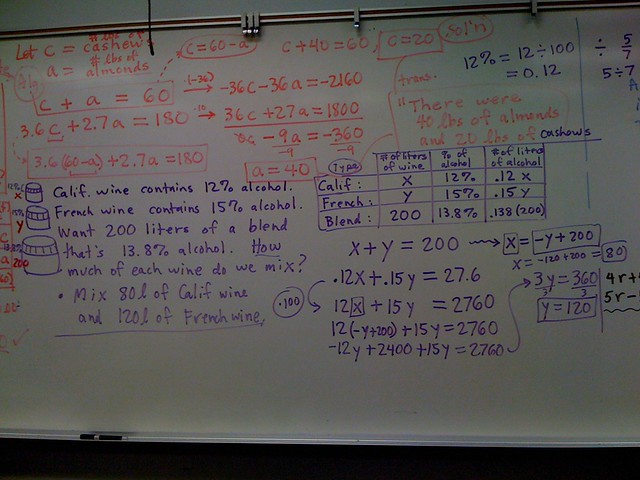 Let c = # lbs of cashews
a = # lbs of almonds
c = 60-a
c + 40 = 60, c = 20
sol'n
c + a = 60
·(-36)
-36c - 36a = -2160
3.6c + 2.7a = 180
·10
36c + 27a = 1800
-9a = -360
-9 -9
3.6(60-a) + 2.7a = 180
a = 40
trans.
"There were
40 lbs of almonds
and 20 lbs of cashews
12% = 12 ÷ 100
= 0.12
÷ 5/7
5÷7
Calif. wine contains 12% alcohol.
French wine contains 15% alcohol.
Want 200 liters of a blend
that's 13.8% alcohol. How
much of each wine do we mix?
• Mix 80l of Calif wine
and 120l of French wine.
12% x
15% y
200
Type # of liters of wine % of alcohol # of liters of alcohol
Calif: x 12% .12 x
French: y 15% .15 y
Blend: 200 13.8% .138(200)
x + y = 200
x = -y + 200
x = -120 + 200 = 80
.12x + .15y = 27.6
·100
12x + 15y = 2760
12(-y+200) + 15y = 2760
-12y + 2400 + 15y = 2760
3y = 360
3 3
y = 120
4r +
5r -